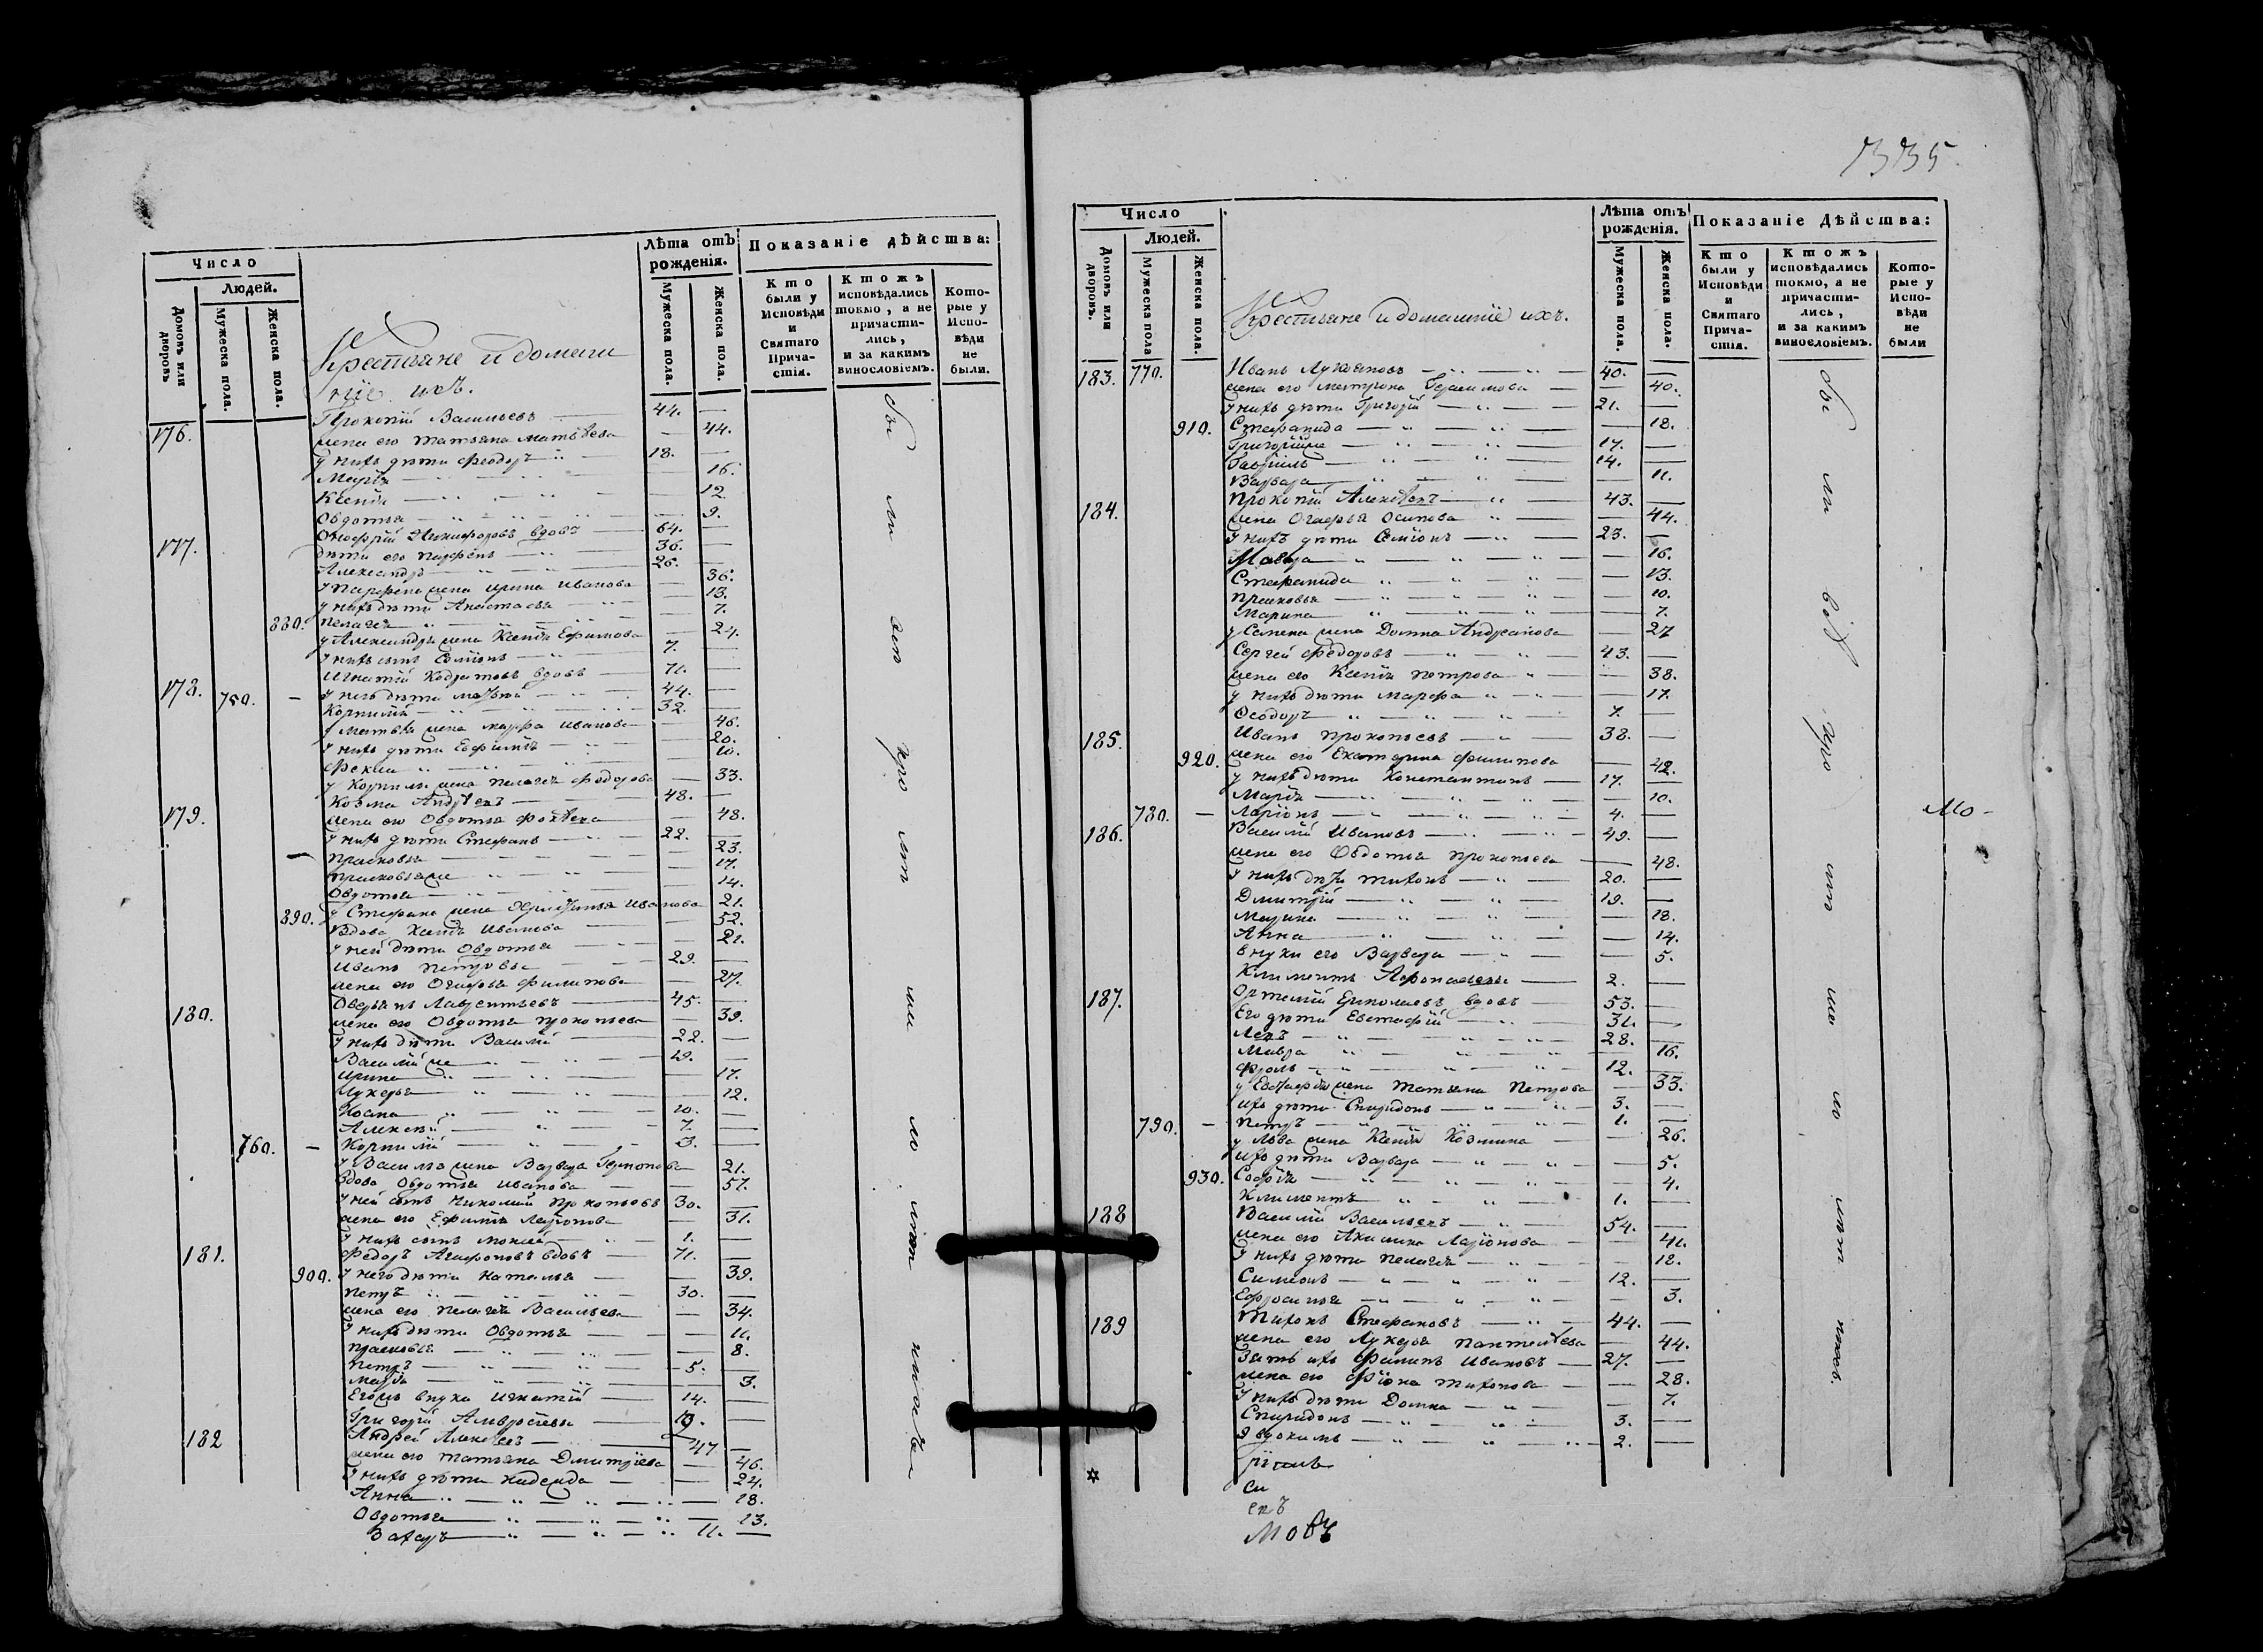 Число
Людей.
Домовъ или дворовъ
Мужеска пола.
Женска пола.
Крестьяне и домаш
ніе ихъ.
Лѣта отъ рожденія.
Мужеска пола.
Женска пола.
Показаніе дѣйства:
Кто были у Исповѣди и Святаго Причастія.
Ктожъ исповѣдались токмо, а не причастились, и за какимъ винословіемъ.
Которые у Исповѣди не были.
176. Прокопій Васильевъ 44.
жена его Татьяна Матвѣева 44.
у нихъ дѣти Феодоръ 18.
Марія 16.
Ксенія 12.
Овдотья 9.
177. Онофрій Никифоровъ вдовъ 64.
дѣти его Парфенъ 36.
Александръ 26.
у Парфена жена Ирина Иванова 36.
у нихъ дѣти Анастасья 13.
880. Пелагея 7.
у Александра жена Ксенія Ефимова 24.
у нихъ сынъ Семіонъ 7.
178. Игнатій Кодратовъ вдовъ 71.
750. у него дѣти Матвей 44.
Корнилій 32.
у Матвѣя жена Марфа Иванова 46.
у нихъ дѣти Евфимія 20.
Фекла 10.
у Корнилы жена Пелагея Федорова 33.
179. Козма Андрѣевъ 48.
жена его Овдотья Фокѣева 48.
у нихъ дѣти Стефанъ 22.
Прасковья 23.
Прасковья же 17.
Овдотья 14.
890. у Стефана жена Христинья Иванова 21.
Вдова Ксенія Иванова 52.
у ней дѣти Овдотья 21.
Иванъ Петровъ 29.
жена его Огафья Филипова 27.
180. Оверьянъ Лаврентьевъ 45.
жена его Овдотья Прокопьева 39.
у нихъ дѣти Василій 22.
Василій же 19.
Ирина 17.
Лукерья 12.
Иоана 10.
Алексѣй 7.
760. Корнилій 3.
у Василья жена Варвара 21.
Вдова Овдотья Иванова 57.
у ней сынъ Николай Прокопьевъ 30.
жена его Ефимія Ларіонова 31.
у нихъ сынъ Моисей 1.
181. Федоръ Агафоновъ вдовъ 71.
900. у него дѣти Наталья 39.
Петръ 30.
жена его Пелагея Васильева 34.
у нихъ дѣти Овдотья 11.
Прасковья 8.
Петръ 5.
Марья 3.
Егожъ внука Игнатій 14.
Григорій Амвросіевы 13.
182 Андрей Алексѣевъ 47
жена его Татьяна Дмитріева 46.
у нихъ дѣти Надежда 24.
Анна 18.
Овдотья 13.
Захаръ 11.
335
Число
Людей.
Домовъ или дворовъ.
Мужеска пола
Женска пола.
Крестьяне и домашніе ихъ.
Лѣта отъ рожденія.
Мужеска пола.
Женска пола.
Показаніе Дѣйства:
Кто были у Исповѣди и Святаго Причастія.
Ктожъ исповѣдались токмо, а не причастились, и за какимъ винословіемъ.
Которые у Исповѣди не были
183. 770. Иванъ Лукояновъ 40.
жена его Матрона Герасимова 40.
у нихъ дѣти Григорій 21.
910. Стефанида 18.
Григорійже 17.
Гавріилъ 14.
Варвара 11.
184. Прокопій Алексѣевъ 43.
жена Огафья Осипова 44.
у нихъ дѣти Семіонъ 23.
Мавра 16.
Стефанида 13.
Прасковья 10.
Марина 7.
у Семена жена Домна Андреанова 27
Сергей Федоровъ 43.
жена его Ксенія Петрова 38.
у нихъ дѣти Марфа 17.
Феодоръ 7.
185. Иванъ Прокопьевъ 38.
920. жена его Екатерина Филипова 42.
у нихъ дѣти Константинъ 17.
Марія 10.
780. Ларіонъ 4.
186. Василій Ивановъ 49.
жена его Овдотья Прокопьева 48.
у нихъ дѣти Тихонъ 20.
Дмитрій 19.
Марина 18.
Анна 14.
внуки его Варвара 5.
Климентъ Афонасьевы 2.
187. Ортемій Ермолаевъ вдовъ 53.
Его дѣти Евстафій 31.
Левъ 28.
Мавра 16.
Фролъ 12.
у Евстафія жена Татьяна Петрова 33.
ихъ дѣти Спиридонъ 3.
790. Петръ 1.
у Льва жена Ксенія Козмина 26.
ихъ дѣти Варвара 5.
930. Софія 4.
Климентъ 1.
188 Василій Васильевъ 54.
жена его Акилина Ларіонова 41.
у нихъ дѣти Пелагея 18.
Симеонъ 12.
Ефросинья 3.
189 Тихонъ Стефановъ 44.
жена его Лукерья Пантелѣева 44.
Зять ихъ Филипъ Ивановъ 27.
жена его Фіона Тихонова 28.
у нихъ дѣти Домна 7.
Спиридонъ 3.
Явдокимъ 2.